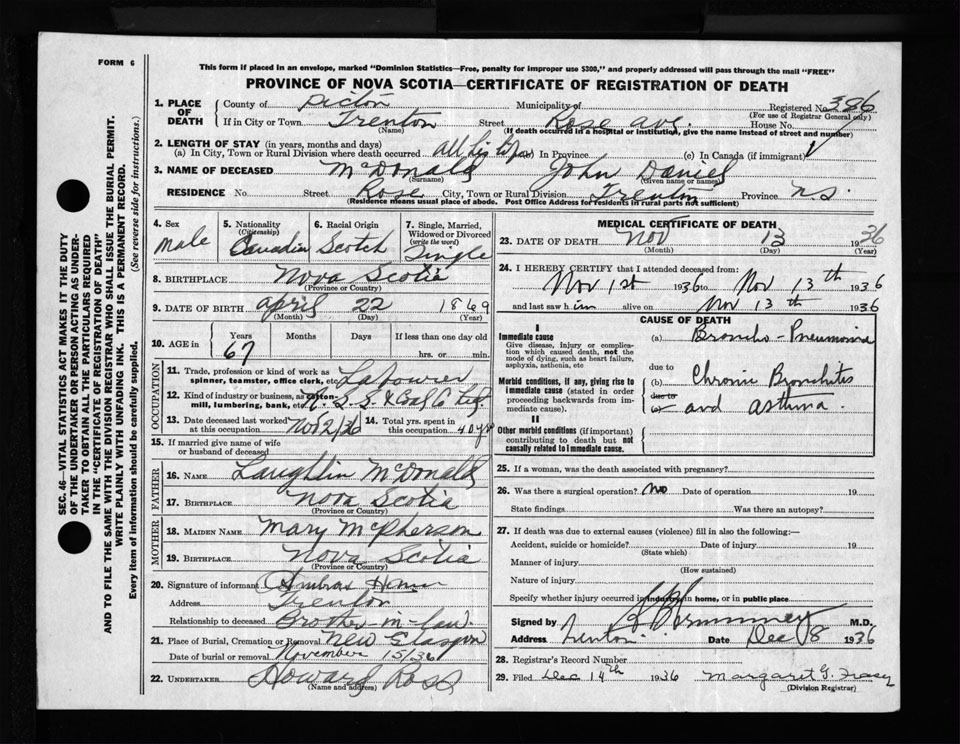 FORM 6
This form if placed in an envelope, marked "Dominion Statistics—Free, penalty for improper use $300," and properly addressed will pass through the mail "FREE"
PROVINCE OF NOVA SCOTIA—CERTIFICATE OF REGISTRATION OF DEATH
SEC. 46—VITAL STATISTICS ACT MAKES IT THE DUTY
OF THE UNDERTAKER OR PERSON ACTING AS UNDER-
TAKER TO OBTAIN ALL THE PARTICULARS REQUIRED
IN THE "CERTIFICATE OF REGISTRATION OF DEATH"
AND TO FILE THE SAME WITH THE DIVISION REGISTRAR WHO SHALL ISSUE THE BURIAL PERMIT.
WRITE PLAINLY WITH UNFADING INK. THIS IS A PERMANENT RECORD.
Every item of information should be carefully supplied. (See reverse side for instructions.)
1. PLACE OF DEATH County of Pictou Municipality of Registered No. 386
(For use of Registrar General only)
If in City or Town Trenton Street Rose Ave. House No.
(Name) (If death occurred in a hospital or institution, give the name instead of street and number)
2. LENGTH OF STAY (in years, months and days)
(a) In City, Town or Rural Division where death occurred All his life (b) In Province (c) In Canada (if immigrant)
3. NAME OF DECEASED McDonald John Daniel
(Surname) (Given name or names)
RESIDENCE No. Street Rose City, Town or Rural Division Trenton Province N.S.
(Residence means usual place of abode. Post Office Address for residents in rural parts not sufficient)
4. Sex Male
5. Nationality (Citizenship) Canadian
6. Racial Origin Scotch
7. Single, Married, Widowed or Divorced (write the word) Single
8. BIRTHPLACE Nova Scotia
(Province or Country)
9. DATE OF BIRTH April 22 1869
(Month) (Day) (Year)
10. AGE in Years 67 Months Days If less than one day old
hrs. or min.
OCCUPATION
11. Trade, profession or kind of work as
spinner, teamster, office clerk, etc. Labourer
12. Kind of industry or business, as cotton-
mill, lumbering, bank, etc. N. S. S. & Coal C Ltd
13. Date deceased last worked at this occupation Nov 2/36
14. Total yrs. spent in this occupation 40 yrs
15. If married give name of wife
or husband of deceased
FATHER
16. NAME Laughlin McDonald
17. BIRTHPLACE Nova Scotia
(Province or Country)
MOTHER
18. MAIDEN NAME Mary McPherson
19. BIRTHPLACE Nova Scotia
(Province or Country)
20. Signature of informant
Address Trenton
Relationship to deceased Brother-in-law
21. Place of Burial, Cremation or Removal New Glasgow
Date of burial or removal November 15/36
22. UNDERTAKER Howard Rose
(Name and address)
MEDICAL CERTIFICATE OF DEATH
23. DATE OF DEATH Nov 13 1936
(Month) (Day) (Year)
24. I HEREBY CERTIFY that I attended deceased from:
Nov 1st 1936 to Nov 13th 1936
and last saw him alive on Nov 13th 1936
CAUSE OF DEATH
I
Immediate cause
Give disease, injury or complica-
tion which caused death, not the
mode of dying, such as heart failure,
asphyxia, asthenia, etc
(a) Broncho-Pneumonia
due to
Morbid conditions, if any, giving rise to
immediate cause (stated in order
proceeding backwards from im-
mediate cause).
(b) Chronic Bronchitis
due to
(c) and asthma.
II
Other morbid conditions (if important)
contributing to death but not
causally related to immediate cause.
25. If a woman, was the death associated with pregnancy?
26. Was there a surgical operation? No Date of operation 19
State findings Was there an autopsy?
27. If death was due to external causes (violence) fill in also the following:—
Accident, suicide or homicide? Date of injury 19
(State which)
Manner of injury
(How sustained)
Nature of injury
Specify whether injury occurred in industry, in home, or in public place
Signed by M.D.
Address Trenton Date Dec 8 1936
28. Registrar's Record Number
29. Filed Dec 14th 1936 Margaret G. Fraser
(Division Registrar)